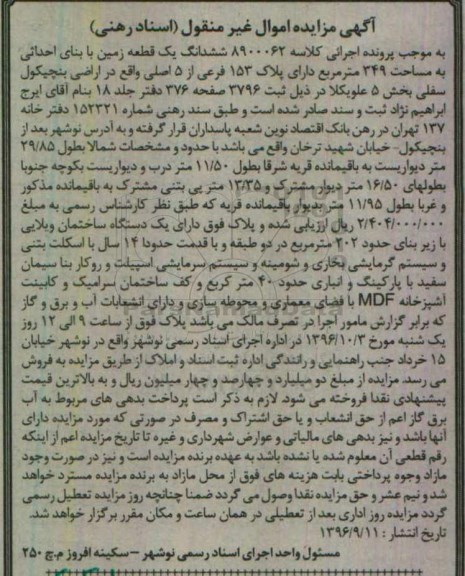 آگهی مزایده اموال غیر منقول (اسناد رهنی)
به موجب پرونده اجرائی کلاسه ۸۹۰۰۰۶۲ ششدانگ یک قطعه زمین با بنای احداثی
به مساحت ۳۴۹ مترمربع دارای پلاک ۱۵۳ فرعی از ۵ اصلی واقع در اراضی بنچیکول
سفلی بخش ۵ علویکلا در ذیل ثبت ۳۷۹۶ صفحه ۳۷۶ دفتر جلد ۱۸ بنام آقای ایرج
ابراهیم نژاد ثبت و سند صادر شده است و طبق سند رهنی شماره ۱۵۲۳۲۱ دفتر خانه
۱۳۷ تهران در رهن بانک اقتصاد نوین شعبه پاسداران قرار گرفته و به آدرس نوشهر بعد از
بنچیکول- خیابان شهید ترخان واقع می باشد با حدود و مشخصات شمالا بطول ۲۹/۸۵
متر دیواریست به باقیمانده قریه شرقا بطول ۱۱/۵۰ متر درب و دیواریست بکوچه جنوبا
بطولهای ۱۶/۵۰ متر دیوار مشترک و ۱۳/۳۵ متر پی بتنی مشترک به باقیمانده مذکور
و غربا بطول ۱۱/۹۵ متر بدیوار باقیمانده قریه که طبق نظر کارشناس رسمی به مبلغ
۲/۴۰۴/۰۰۰/۰۰۰ ریال ارزیابی شده و پلاک فوق دارای یک دستگاه ساختمان ویلایی
با زیر بنای حدود ۲۰۲ مترمربع در دو طبقه و با قدمت حدودا ۱۴ سال با اسکلت بتنی
و سیستم گرمایشی بخاری و شومینه و سیستم سرمایشی اسپیلت و روکار بنا سیمان
سفید با پارکینگ و انباری حدود ۴۰ متر کربع و کف ساختمان سرامیک و کابینت
آشپزخانه MDF با فضای معماری و محوطه سازی و دارای انشعابات آب و برق و گاز
که برابر گزارش مامور اجرا در تصرف مالک می باشد پلاک فوق از ساعت ۹ الی ۱۲ روز
یک شنبه مورخ ۱۳۹۶/۱۰/۳ در اداره اجرای اسناد رسمی نوشهر واقع در نوشهر خیابان
۱۵ خرداد جنب راهنمایی و رانندگی اداره ثبت اسناد و املاک از طریق مزایده به فروش
می رسد. مزایده از مبلغ دو میلیارد و چهارصد و چهار میلیون ریال و به بالاترین قیمت
پیشنهادی نقدا فروخته می شود. لازم به ذکر است پرداخت بدهی های مربوط به آب
برق گاز اعم از حق انشعاب و یا حق اشتراک و مصرف در صورتی که مورد مزایده دارای
آنها باشد و نیز بدهی های مالیاتی و عوارض شهرداری و غیره تا تاریخ مزایده اعم از اینکه
رقم قطعی آن معلوم شده یا نشده باشد به عهده برنده مزایده است و نیز در صورت وجود
مازاد وجوه پرداختی بابت هزینه های فوق از محل مازاد به برنده مزایده مسترد خواهد
شد و نیم عشر و حق مزایده نقدا وصول می گردد ضمنا چنانچه روز مزایده تعطیل رسمی
گردد مزایده روز اداری بعد از تعطیلی در همان ساعت و مکان مقرر برگزار خواهد شد.
تاریخ انتشار : ۱۳۹۶/۹/۱۱
مسئول واحد اجرای اسناد رسمی نوشهر – سکینه افروز م.چ ۲۵۰